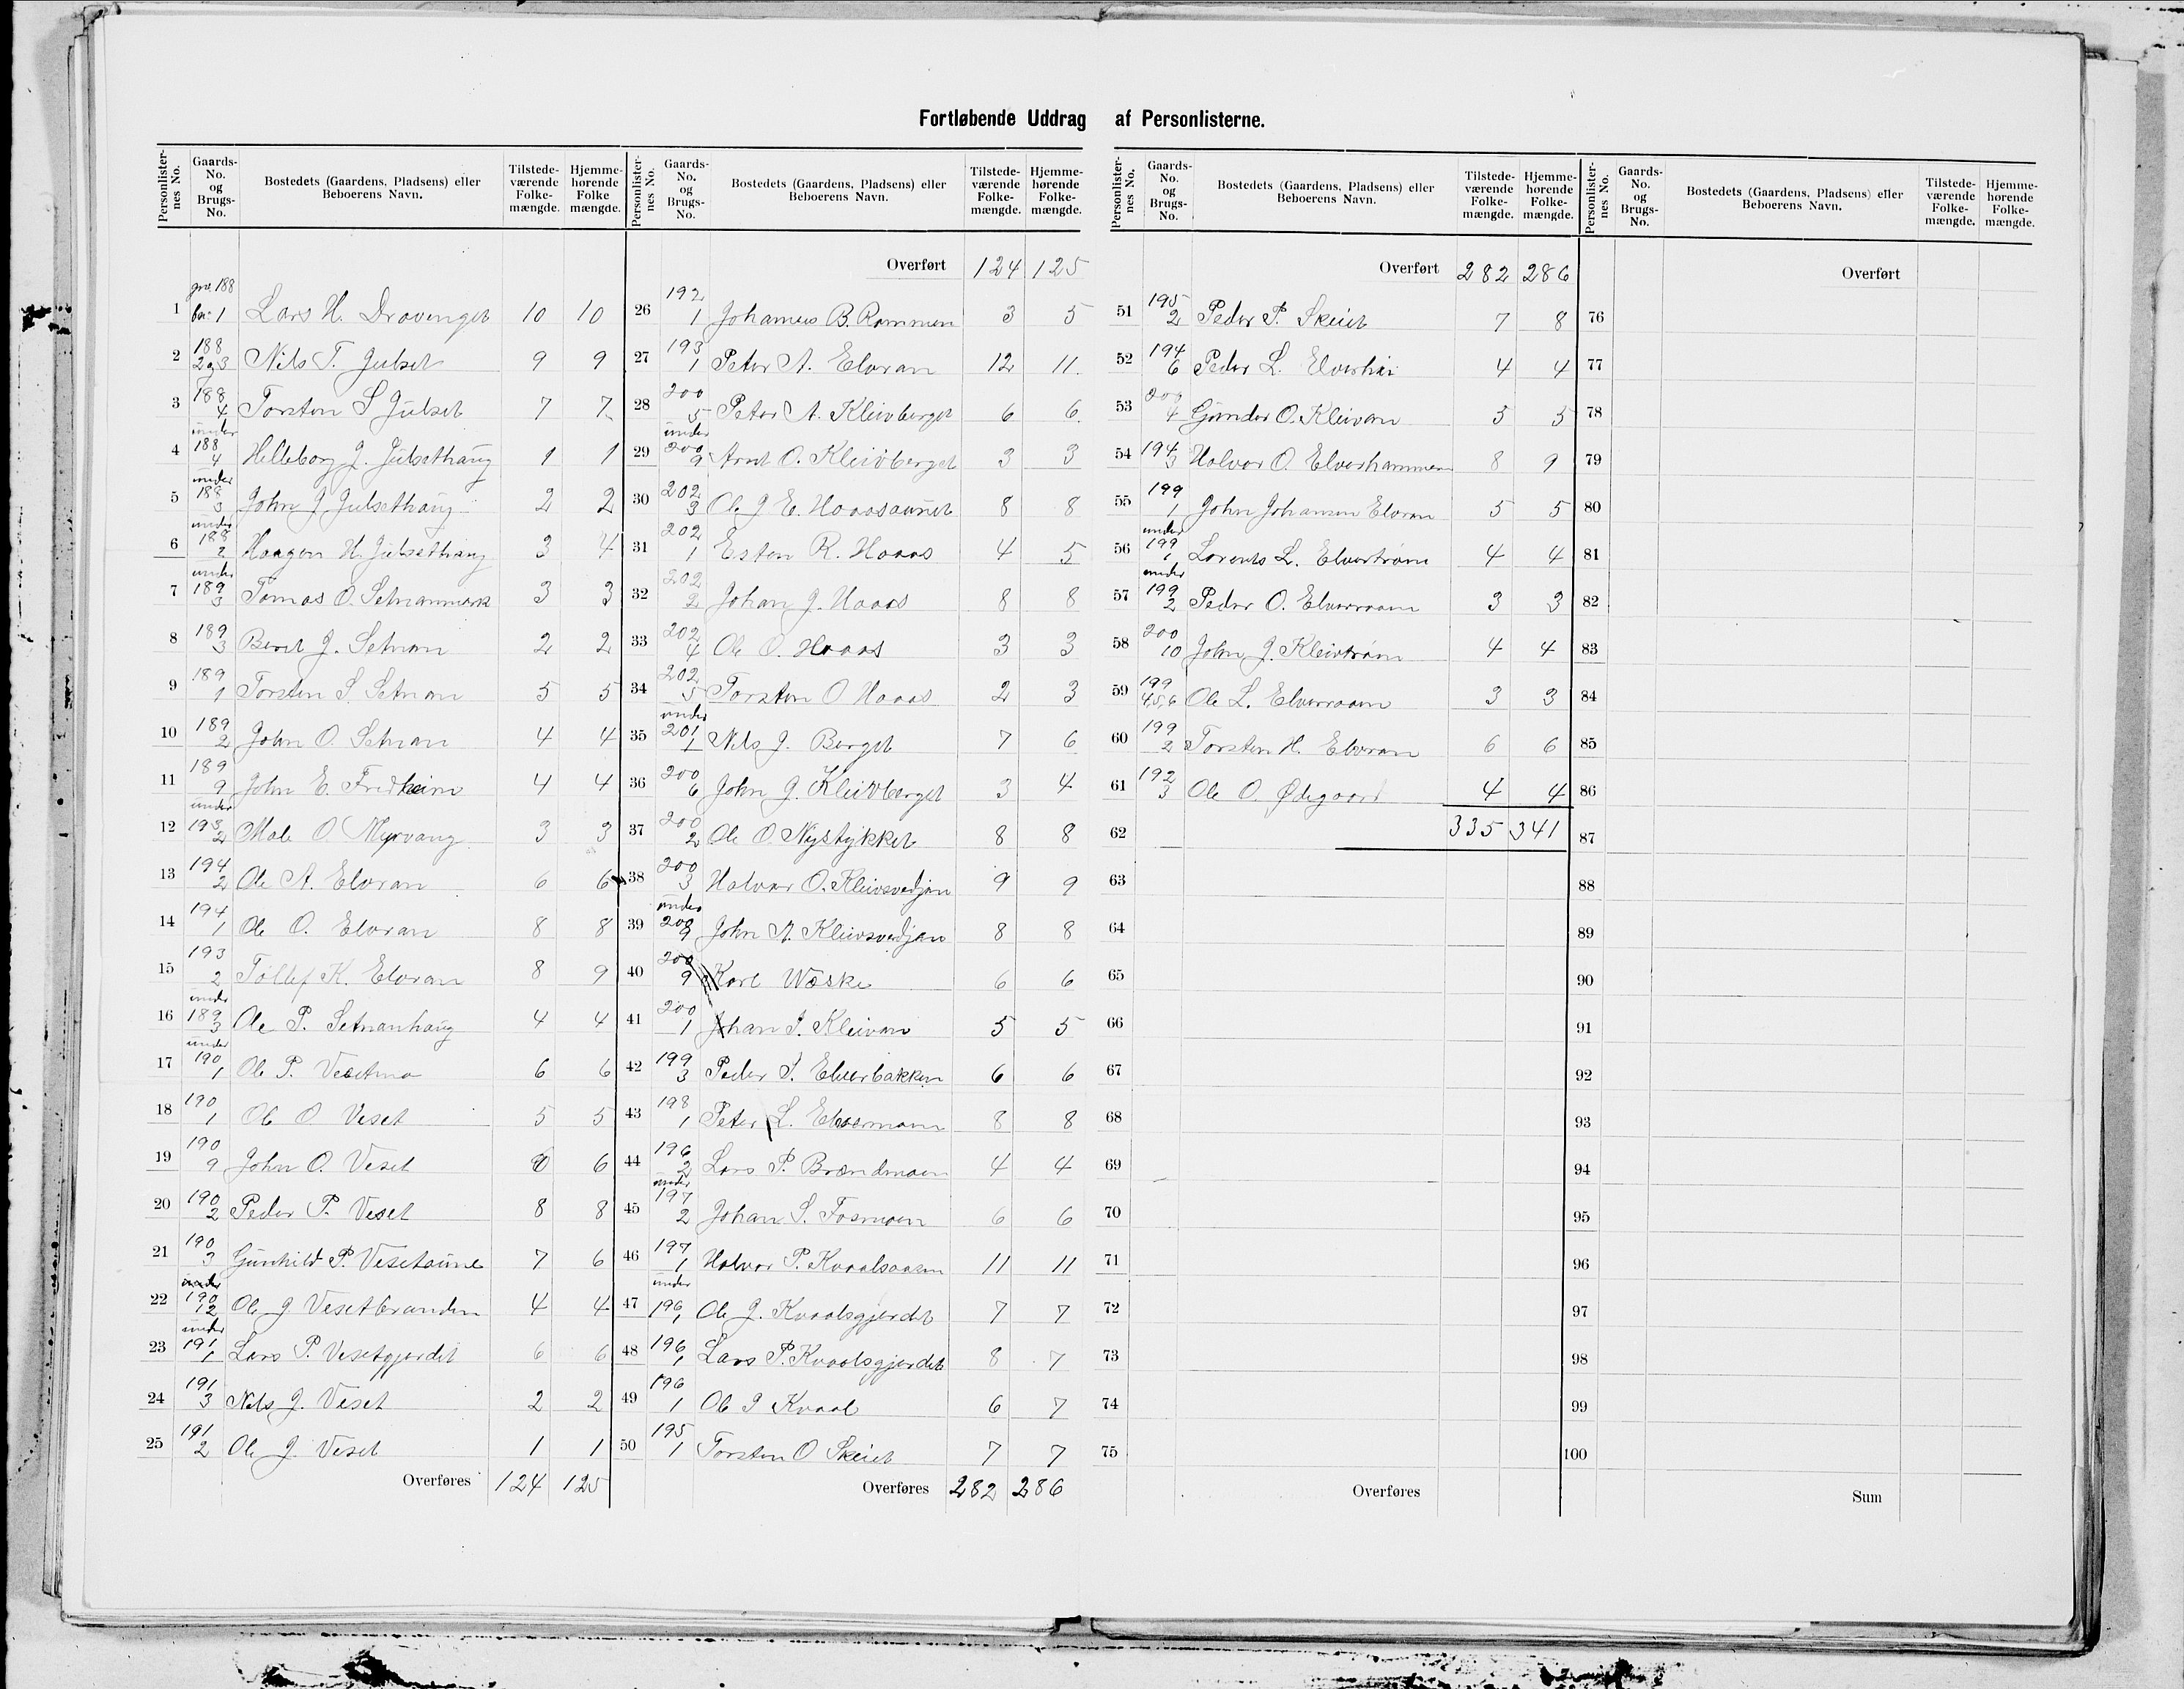 Fortløbende Uddrag af Personlisterne.
Personlisternes No. Gaards-No. og Brugs-No. Bostedets (Gaardens, Pladsens) eller Beboerens Navn. Tilstedeværende Folkemængde. Hjemmehørende Folkemængde.
1 gno 188 bno 1 Lars H. Dravenget 10 10
2 188 2og3 Nils T. Julset 9 9
3 188 4 Torsten S Julset 7 7
4 under 188 4 Helleborg J. Julsethaug 1 1
5 under 188 3 John J Julsethaug 2 2
6 under 188 2 Haagen H. Julsethaug 3 4
7 under 189 3 Tomas O. Setnanmark 3 3
8 189 3 Berit J. Setnan 2 2
9 189 1 Torsten S. Setnan 5 5
10 189 2 John O. Setnan 4 4
11 189 9 John E. Fredheim 4 4
12 under 193 2 Male O. Myrvang 3 3
13 194 2 Ole A. Elvran 6 6
14 194 1 Ole O. Elvran 8 8
15 193 2 Tollef K. Elvran 8 9
16 under 189 3 Ole P. Setnanhaug 4 4
17 under 190 1 Ole P. Vesetmo 6 6
18 190 1 Ole O. Veset 5 5
19 190 9 John O. Veset 6 6
20 190 2 Peder P. Veset 8 8
21 190 3 Gunhild P. Vesetaune 7 6
22 under 190 12 Ole J Vesetbranden 4 4
23 under 191 1 Lars P. Vesetgjerdet 6 6
24 191 3 Nils J. Veset 2 2
25 191 2 Ole J. Veset 1 1
Overføres 124 125
Personlisternes No. Gaards-No. og Brugs-No. Bostedets (Gaardens, Pladsens) eller Beboerens Navn. Tilstedeværende Folkemængde. Hjemmehørende Folkemængde.
Overført 124 125
26 192 1 Johannes B. Rommen 3 5
27 193 1 Peter A. Elvran 12 11
28 200 5 Peter A. Kleivberget 6 6
29 under 200 9 Arnt O. Kleivberget 3 3
30 202 3 Ole J E. Haasaunet 8 8
31 202 1 Esten R. Haaas 4 5
32 202 2 Johan J. Haaas 8 8
33 202 4 Ole O. Haaas 3 3
34 202 5 Torsten O Haaas 2 3
35 under 201 1 Nils J. Berget 7 6
36 200 6 John J. Kleivberget 3 4
37 200 2 Ole O. Nystykket 8 8
38 200 3 Halvor O. Kleivsvedjan 9 9
39 under 200 9 John A. Kleivsvedjan 8 8
40 200 9 Karl Wæske 6 6
41 200 1 Johan P. Kleivan 5 5
42 199 3 Peder P. Elverbakken 6 6
43 198 1 Peter L. Elvermoen 8 8
44 196 2 Lars P. Brændmoen 4 4
45 under 197 2 Johan S. Fosmoen 6 6
46 197 1 Halvor P. Kvaalsaasen 11 11
47 under 196 1 Ole J. Kvaalsgjerdet 7 7
48 196 1 Lars P. Kvaalsgjerdet 8 7
49 196 1 Ole P Kvaal 6 7
50 195 1 Torsten O Skeiet 7 7
Overføres 282 286
Personlisternes No. Gaards-No. og Brugs-No. Bostedets (Gaardens, Pladsens) eller Beboerens Navn. Tilstedeværende Folkemængde. Hjemmehørende Folkemængde.
Overført 282 286
51 195 2 Peder P. Skeiet 7 8
52 194 6 Peder L. Elverhøi 4 4
53 200 4 Gunder O. Kleivan 5 5
54 194 3 Halvor O. Elverhammer 8 9
55 199 1 John Johansen Elvran 5 5
56 under 199 1 Lorents L. Elvertrøen 4 4
57 under 199 2 Peder O. Elverraaen 3 3
58 200 10 John J. Kleivtrøen 4 4
59 199 4,5,6 Ole L. Elverraaen 3 3
60 199 2 Torsten H. Elvran 6 6
61 192 3 Ole O. Ødegaard 4 4
62 335 341
63
64
65
66
67
68
69
70
71
72
73
74
75
Overføres
Personlisternes No. Gaards-No. og Brugs-No. Bostedets (Gaardens, Pladsens) eller Beboerens Navn. Tilstedeværende Folkemængde. Hjemmehørende Folkemængde.
Overført
76
77
78
79
80
81
82
83
84
85
86
87
88
89
90
91
92
93
94
95
96
97
98
99
100
Sum